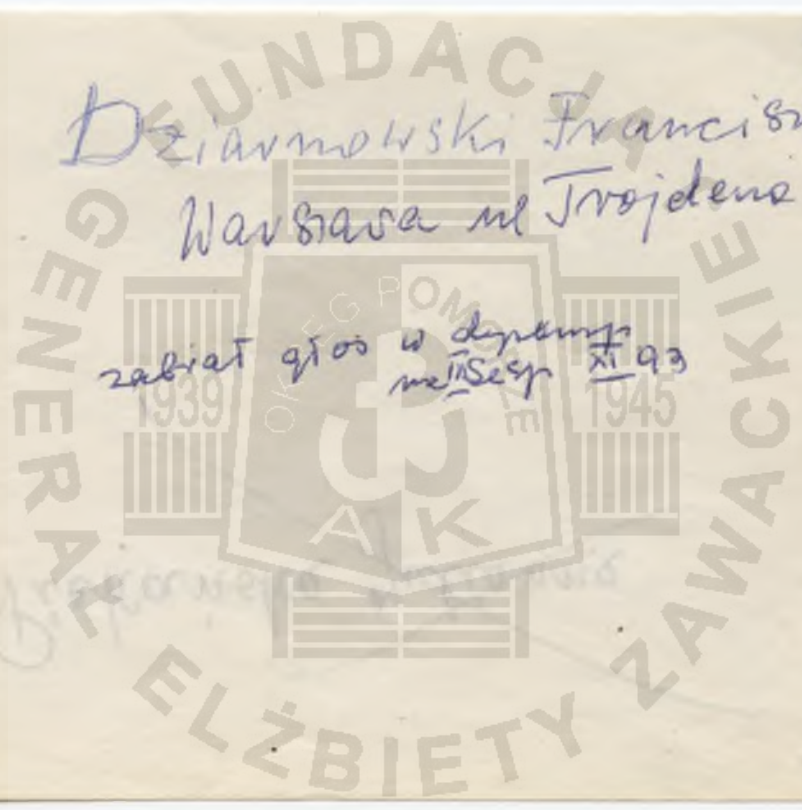 Dziarnowski Francisz
Warszawa ul Trojdena
zabrał głos w dyskusji
na II Sesji XI 93
FUNDACJA
GENERAŁ ELŻBIETY ZAWACKIEJ
OKRĘG POMORZE
1939 1945
AK